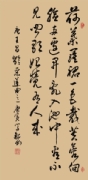 荷葉羅裙一色裁芙蓉向
臉兩邊開亂入池中看不
見聞歌始覺有人来
唐王昌齡采蓮曲